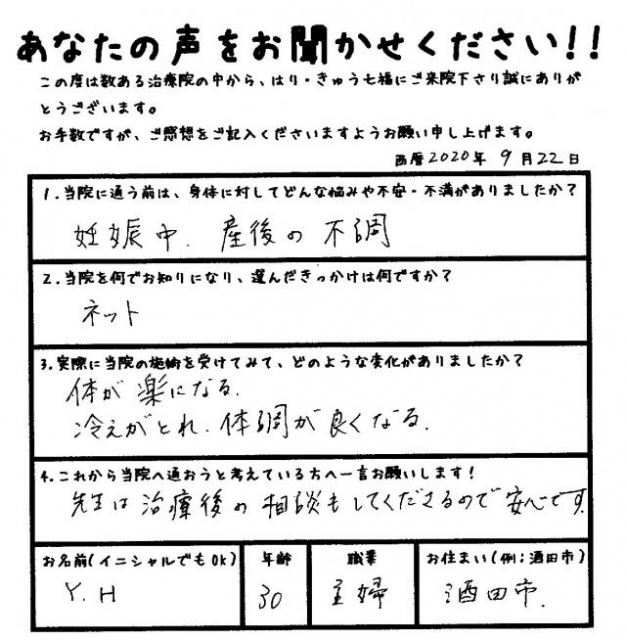 あなたの声をお聞かせください!!
この度は数ある治療院の中から、はり・きゅう七福にご来院下さり誠にありが
とうございます。
お手数ですが、ご感想をご記入くださいますようお願い申し上げます。
西暦2020年 9月22日
1.当院に通う前は、身体に対してどんな悩みや不安・不満がありましたか?
妊娠中、産後の不調
2.当院を何でお知りになり、選んだきっかけは何ですか?
ネット
3.実際に当院の施術を受けてみて、どのような変化がありましたか?
体が楽になる。
冷えがとれ、体調が良くなる。
4.これから当院へ通おうと考えている方へ一言お願いします!
先生は治療後の相談もしてくださるので安心です。
お名前(イニシャルでもOK) 年齢 職業 お住まい(例:酒田市)
Y.H 30 主婦 酒田市.